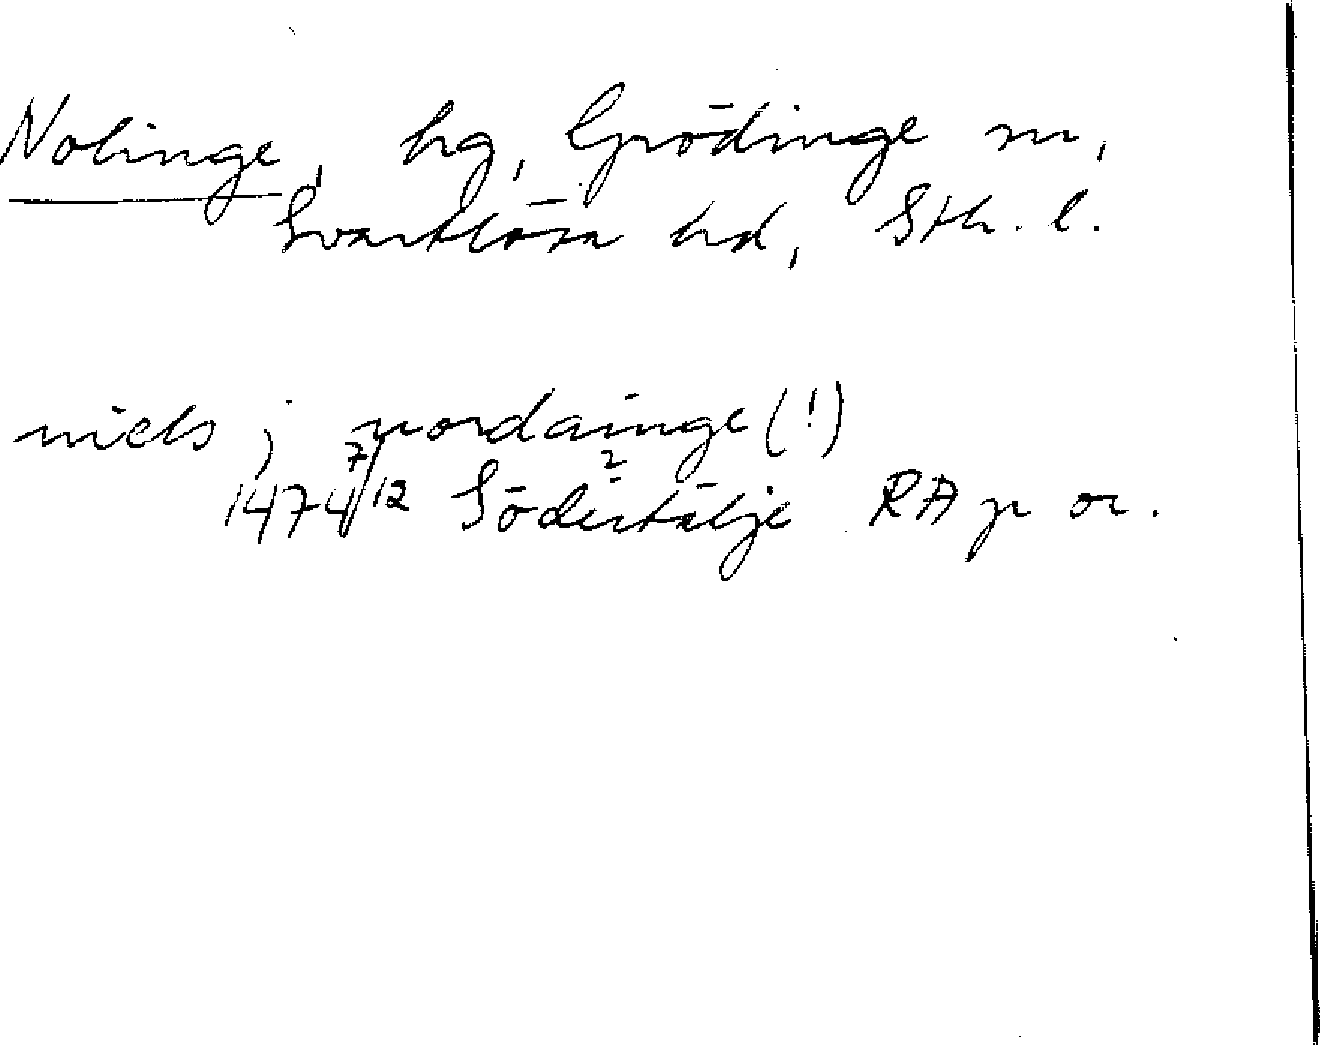 Nolinge, hg, Grödinge sn,
Svartlösa hd, Sth. l.
niels j nordainge (!)
1474 7/12 Södertälje RA p or.